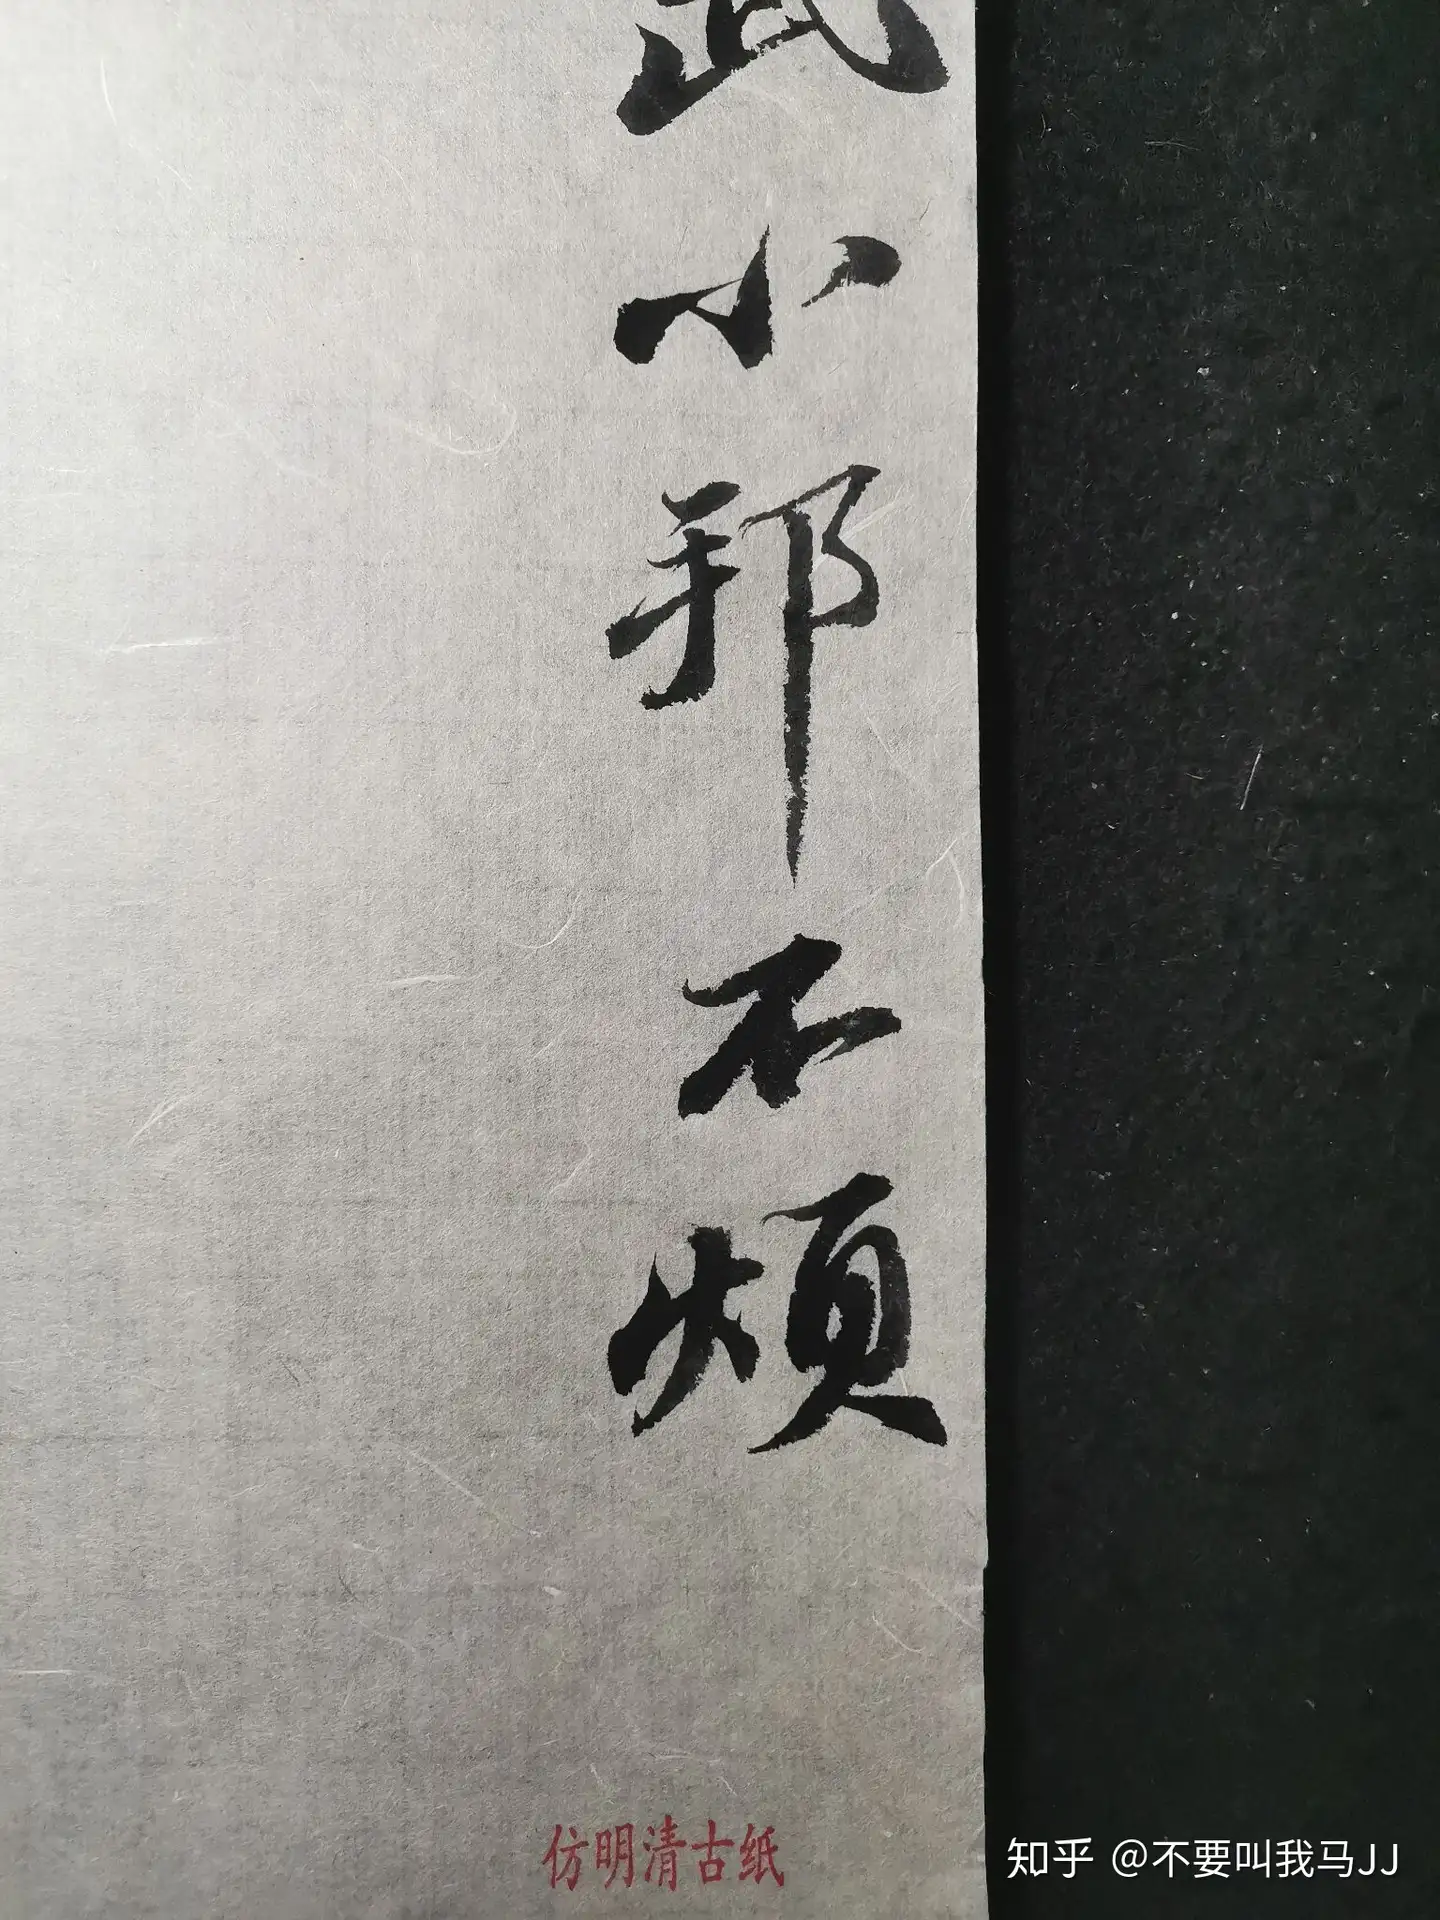 武小邦不煩
仿明清古纸
知乎 @不要叫我马JJ